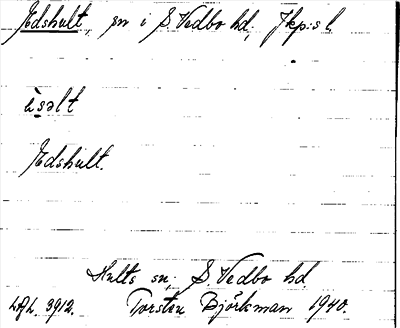 Edshult, sn i S. Vedbo hd, Jkp:s l.
ùsəlt
Edshult.
Hults sn, S. Vedbo hd
LAL. 3912. Torsten Björkman 1940.